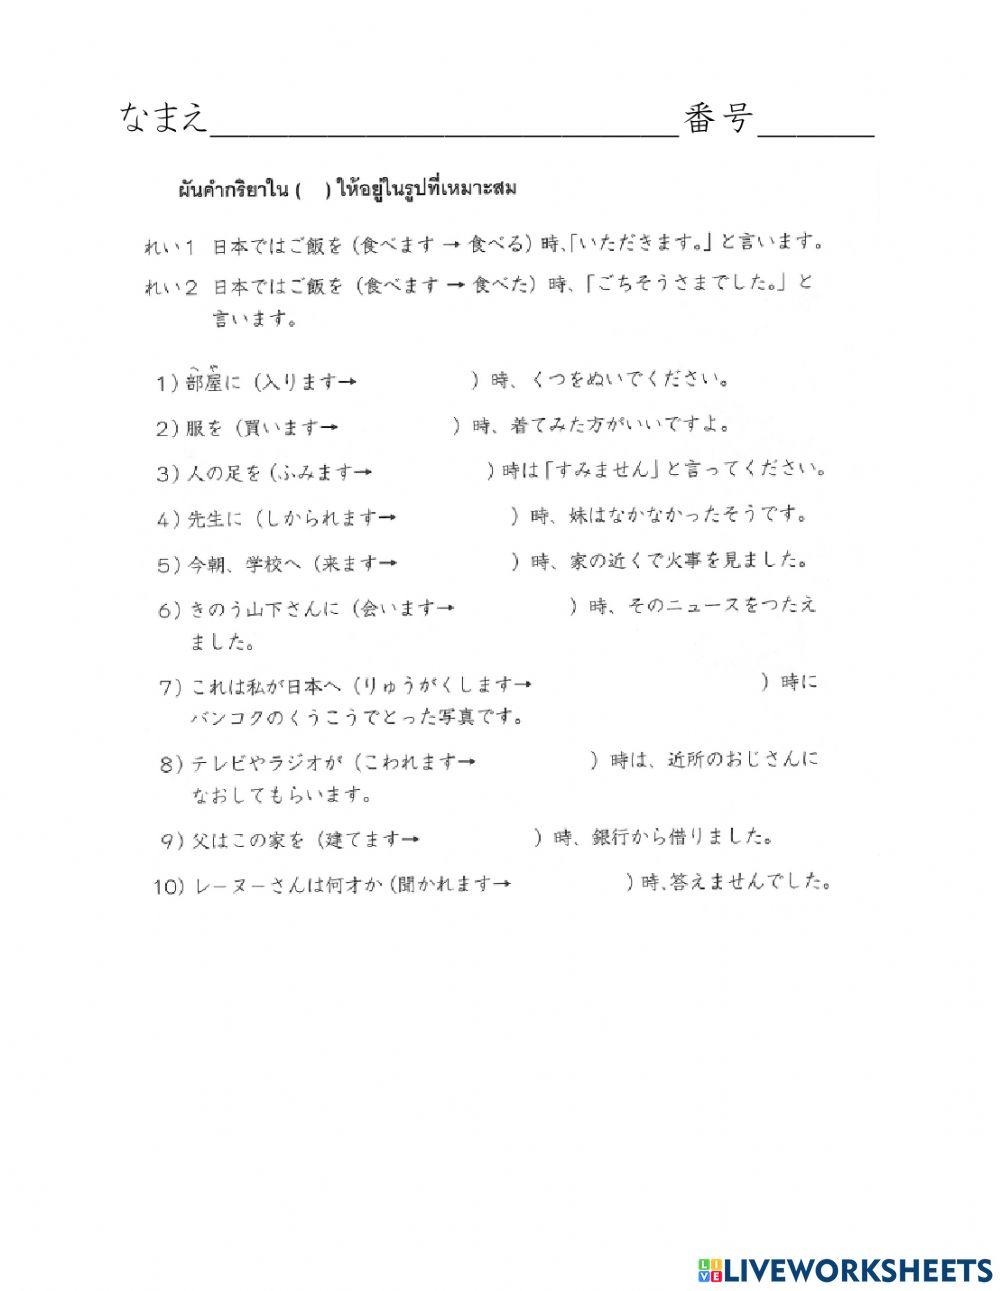 なまえ____________________________番号_______
ผันคำกริยาใน (    ) ให้อยู่ในรูปที่เหมาะสม
れい1 日本ではご飯を (食べます → 食べる) 時、「いただきます。」と言います。
れい2 日本ではご飯を (食べます → 食べた) 時、「ごちそうさまでした。」と
言います。
へや
1) 部屋に (入ります→ ) 時、くつをぬいでください。
2) 服を (買います→ ) 時、着てみた方がいいですよ。
3) 人の足を (ふみます→ ) 時は「すみません」と言ってください。
4) 先生に (しかられます→ ) 時、妹はなかなかったそうです。
5) 今朝、学校へ (来ます→ ) 時、家の近くで火事を見ました。
6) きのう山下さんに (会います→ ) 時、そのニュースをつたえ
ました。
7) これは私が日本へ (りゅうがくします→ ) 時に
バンコクのくうこうでとった写真です。
8) テレビやラジオが (こわれます→ ) 時は、近所のおじさんに
なおしてもらいます。
9) 父はこの家を (建てます→ ) 時、銀行から借りました。
10) レーヌーさんは何才か (聞かれます→ ) 時、答えませんでした。
LIVE LIVEWORKSHEETS